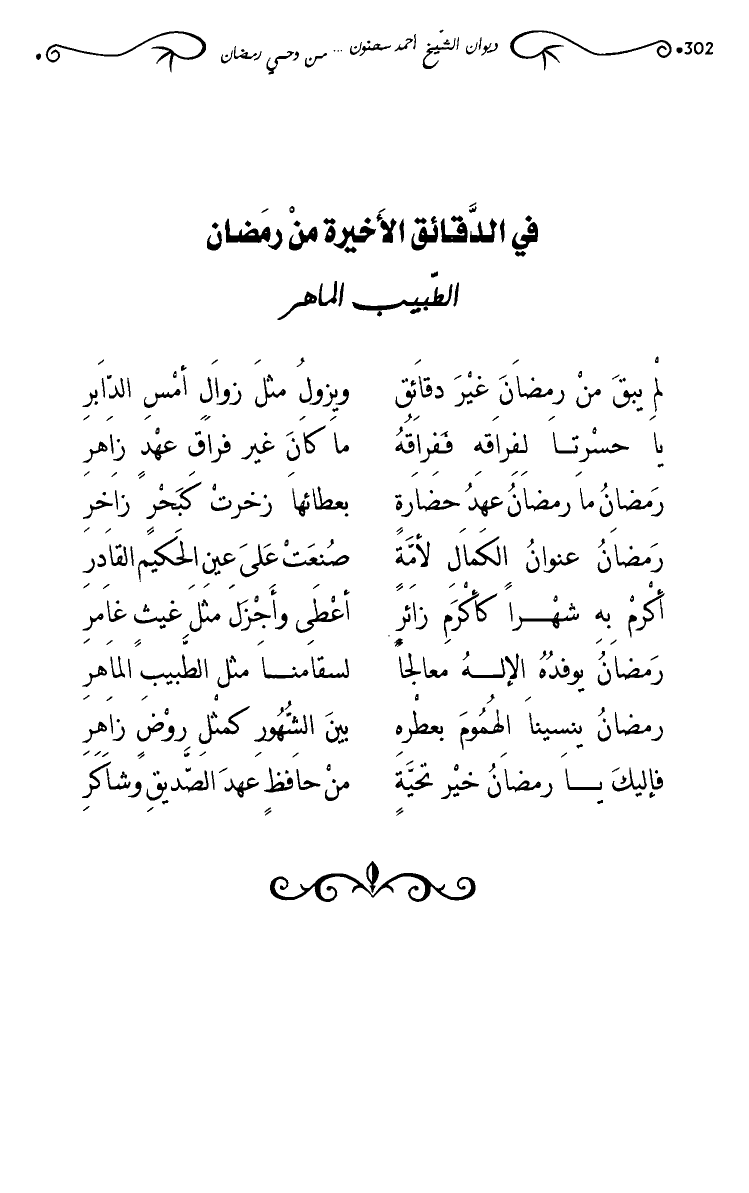 302 ديوان الشّيخ أحمد سحنون ... من وحي رمضان
في الدَّقائق الأَخيرة منْ رمَضان
الطّبيب الماهر
لمْ يبقَ منْ رمضانَ غيْرَ دقائِقٍ ويزولُ مثلَ زوالِ أمْسِ الدّابرِ
يا حسْرتا لفراقه فَفراقُهُ ما كانَ غير فراقِ عهْدٍ زاهرِ
رَمضانُ ما رمضانُ عهدُ حضارة بعطائها زخرتْ كَبَحْرٍ زاخرِ
رَمضانُ عنوانُ الكَمالِ لأمَّةٍ صُنعَتْ عَلىَ عينِ الحَكيمِ القادرِ
أكْرمْ بِهِ شهْراً كَأكْرَمِ زائرٍ أعْطى وأَجْزَلَ مثلَ غيثٍ غامرِ
رَمضانُ يوفدُهُ الإلهُ معالجاً لسقامنا مثل الطَّبيبِ الماهرِ
رمضانُ ينسيناَ الهُمُومَ بعطْرِهِ بينَ الشُّهُورِ كمثْلِ روْضٍ زاهَرِ
فإليكَ يا رمضانُ خيْر تحيَّةٍ منْ حافظٍ عهدَ الصَّديقِ وشاكرِ